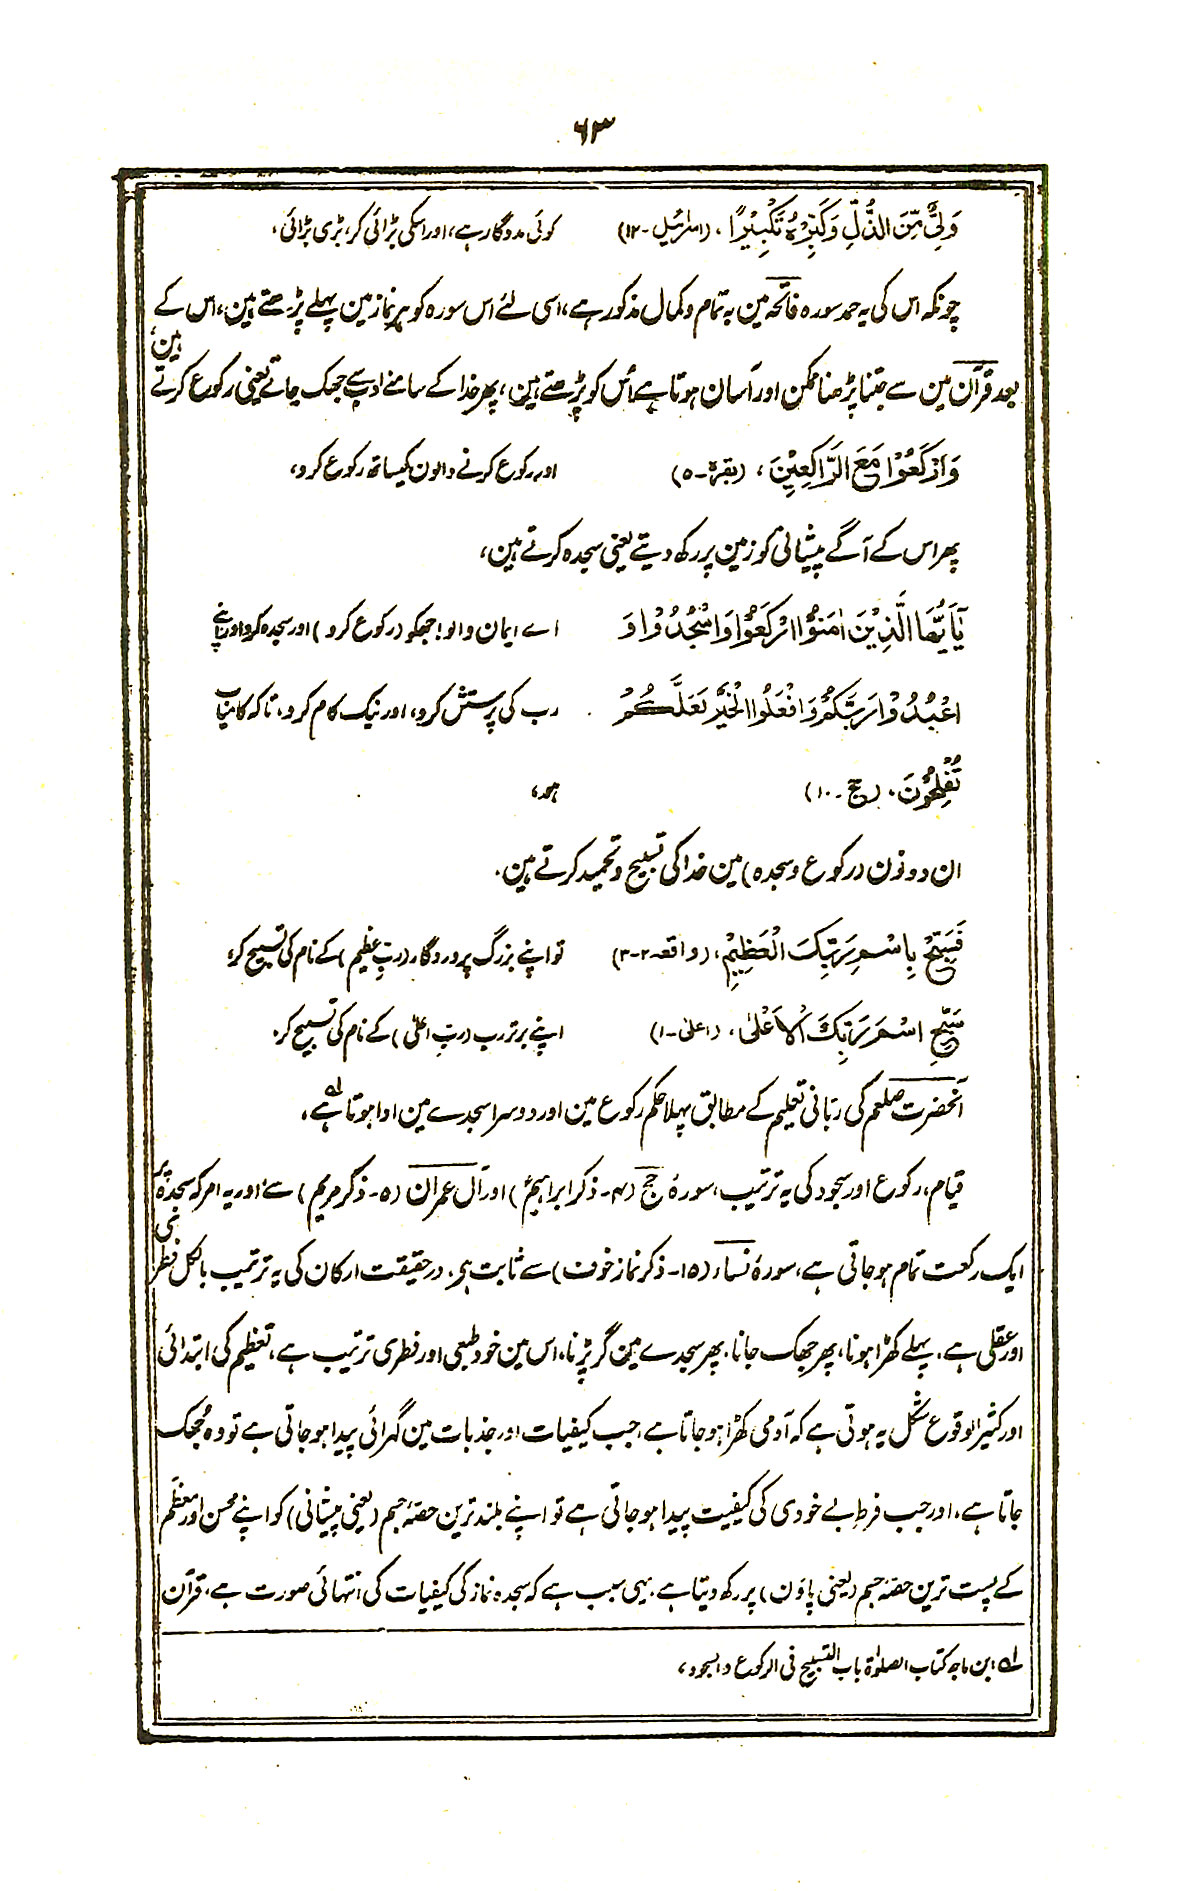 ۶۳
وَلِيٌّ مِّنَ الذُّلِّ وَكَبِّرْهُ تَكْبِيْرًا، (اسرائیل-۱۲) کوئی مددگار ہے، اور اسکی بڑائی کر، بڑی بڑائی،
چونکہ اس کی یہ حمد سورہ فاتحہ مین بہ تمام و کمال مذکور ہے، اسی لئے اس سورہ کو ہر نماز مین پہلے پڑھتے ہین، اس کے
بعد قرآن مین سے جتنا پڑھنا ممکن اور آسان ہوتا ہے اُس کو پڑھتے ہین، پھر خدا کے سامنے ادب سے جھک جاتے یعنی رکوع کرتے ہین،
وَارْكَعُوْا مَعَ الرَّاكِعِيْنَ، (بقرہ-۵) اور رکوع کرنے والون کیساتھ رکوع کرو،
پھر اس کے آگے پیشانی کو زمین پر رکھ دیتے یعنی سجدہ کرتے ہین،
يٰۤاَيُّهَا الَّذِيْنَ اٰمَنُوا ارْكَعُوْا وَاسْجُدُوْا وَ اے ایمان والو! جھکو (رکوع کرو) اور سجدہ کرو اور اپنے
اعْبُدُوْا رَبَّكُمْ وَافْعَلُوا الْخَيْرَ لَعَلَّكُمْ رب کی پرستش کرو، اور نیک کام کرو، تاکہ کامیاب
تُفْلِحُوْنَ. (حج-۱۰) ہو،
ان دونون (رکوع و سجدہ) مین خدا کی تسبیح و تحمید کرتے ہین.
فَسَبِّحْ بِاسْمِ رَبِّكَ الْعَظِيْمِ، (واقعہ-۲-۳) تو اپنے بزرگ پروردگار (ربِ عظیم) کے نام کی تسبیح کر،
سَبِّحِ اسْمَ رَبِّكَ الْاَعْلٰى، (اعلیٰ-۱) اپنے برتر رب (ربِ اعلیٰ) کے نام کی تسبیح کر.
آنحضرت صلعم کی زبانی تعلیم کے مطابق پہلا حکم رکوع مین اور دوسرا سجدے مین ادا ہوتا ہے لہ،
قیام، رکوع اور سجود کی یہ ترتیب، سورۂ حج (۴- ذکر ابراہیمؑ) اور آل عمران (۵- ذکر مریم) سے، اور یہ امر کہ سجدہ پر
ایک رکعت تمام ہو جاتی ہے، سورۂ نساء (۱۵- ذکر نماز خوف) سے ثابت ہو. درحقیقت ارکان کی یہ ترتیب بالکل فطری
اور عقلی ہے. پہلے کھڑا ہونا، پھر جھک جانا. پھر سجدے مین گر پڑنا، اس مین خود طبعی اور فطری ترتیب ہے، تعظیم کی ابتدائی
اور کثیر الوقوع شکل یہ ہوتی ہے کہ آدمی کھڑا ہو جاتا ہے، جب کیفیات اور جذبات مین گہرائی پیدا ہو جاتی ہے تو وہ جُھک
جاتا ہے، اور جب فرطِ بے خودی کی کیفیت پیدا ہو جاتی ہے تو اپنے بلند ترین حصۂ جسم (یعنی پیشانی) کو اپنے محسن اور معظم
کے پست ترین حصۂ جسم (یعنی پاؤن) پر رکھ دیتا ہے. یہی سبب ہے کہ سجدہ نماز کی کیفیات کی انتہائی صورت ہے. قرآن
لہ ابن ماجہ کتاب الصلوٰۃ باب التسبیح فی الرکوع والسجود،